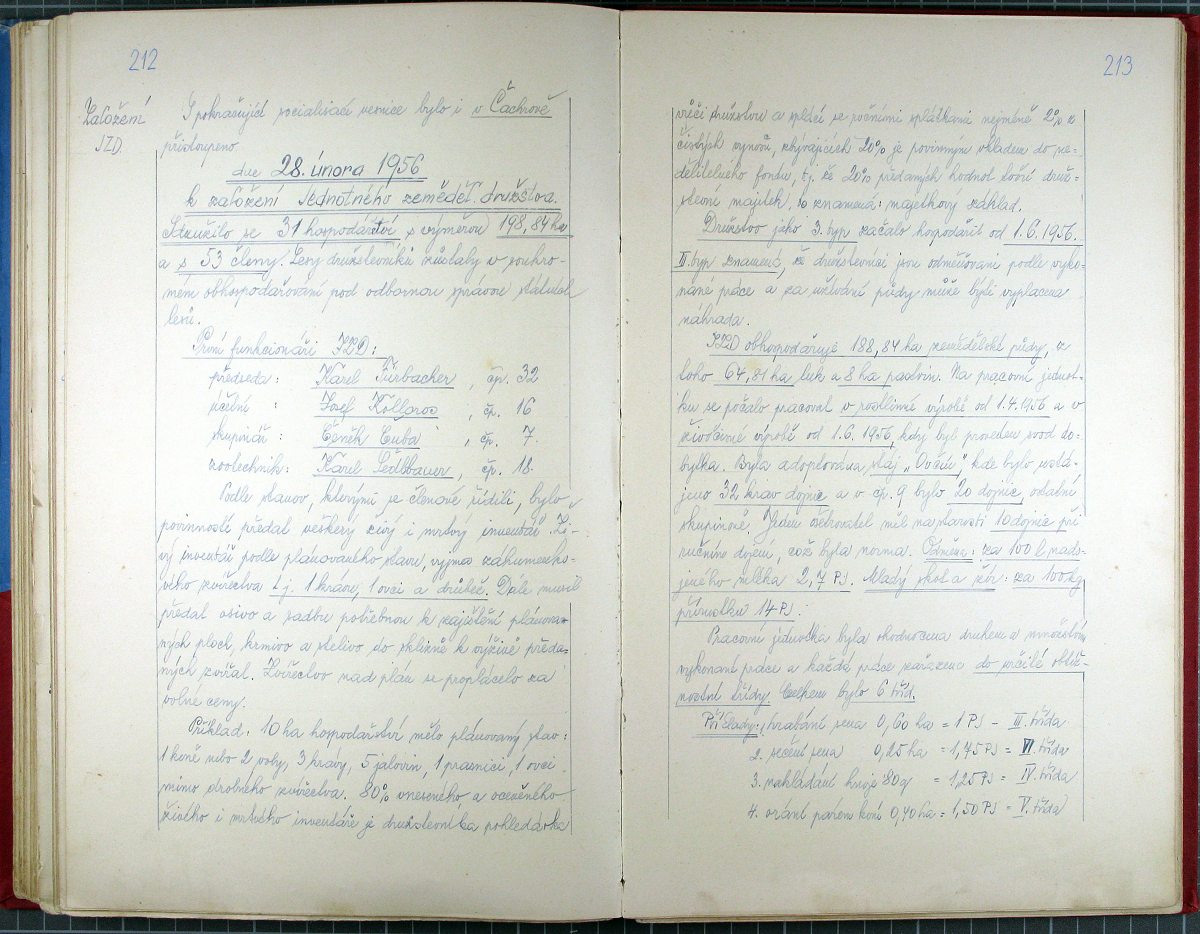 212
Založení
JZD.
S pokračující socialisací vesnice bylo i v Čachrově
přistoupeno
dne 28. února 1956
k založení Jednotného zeměděl. družstva.
Sdružilo se 31 hospodářství s výměrou 198,84 ha
a s 53 členy. Lesy družstevníků zůstaly v soukro-
mém obhospodařování pod odbornou správou státních
lesů.
První funkcionáři JZD:
předseda: Karel Fürbacher, čp. 32
účetní: Josef Kollros, čp. 16
skupinář: Čeněk Cuba, čp. 7.
zootechnik: Karel Sedlbauer, čp. 18.
Podle stanov, kterými se členové řídili, bylo
povinností předat veškerý živý i mrtvý inventář. Ži-
vý inventář podle plánovaného stavu, vyjma záhumenko-
vého zvířectva t.j. 1 krávu, 1 ovci a drůbež. Dále musil
předat osivo a sadbu potřebnou k zajištění plánova-
ných ploch, krmivo a stelivo do sklizně k výživě předa-
ných zvířat. Zvířectvo nad plán se proplácelo za
volné ceny.
Příklad: 10 ha hospodářství mělo plánovaný stav:
1 koně nebo 2 voly, 3 krávy, 5 jalovin, 1 prasnici, 1 ovci
mimo drobného zvířectva. 80% vneseného a oceněného
živého i mrtvého inventáře je družstevníka pohledávka
213
vůči družstvu a splácí se ročními splátkami nejméně 2% z
čistých výnosů, zbývajících 20% je povinným vkladem do ne-
dělitelného fondu, t.j. že 20% předaných hodnot tvoří druž-
stevní majetek, to znamená: majetkový základ.
Družstvo jako 3. typ začalo hospodařit od 1.6.1956.
III. typ znamená, že družstevníci jsou odměňováni podle vyko-
nané práce a za užívání půdy může býti vyplacena
náhrada.
JZD obhospodařuje 188,84 ha zemědělské půdy, z
toho 64,81 ha luk a 8 ha pastvin. Na pracovní jednot-
ku se počalo pracovat v rostlinné výrobě od 1.4.1956 a v
živočišné výrobě od 1.6.1956, kdy byl proveden svod do-
bytka. Byla adoptována stáj „Ovčín", kde bylo ustá-
jeno 32 krav dojnic a v čp. 9 bylo 20 dojnic, ostatní
skupinově. Jeden ošetřovatel měl na starosti 10 dojnic při
ručním dojení, což byla norma. Odměna: za 100 l nado-
jeného mléka 2,7 PJ. Mladý skot a žír: za 100 kg
přírůstku 14 PJ.
Pracovní jednotka byla ohodnocena druhem a množstvím
vykonané práce a každá práce zařazena do určité obtíž-
nostní třídy. Celkem bylo 6 tříd.
Příklady: hrabání sena 0,60 ha = 1 PJ – III. třída
2. sečení sena 0,25 ha = 1,75 PJ = VI. třída
3. nakládání hnoje 80 q = 1,25 PJ = IV. třída
4. orání párem koní 0,40 ha = 1,50 PJ = V. třída